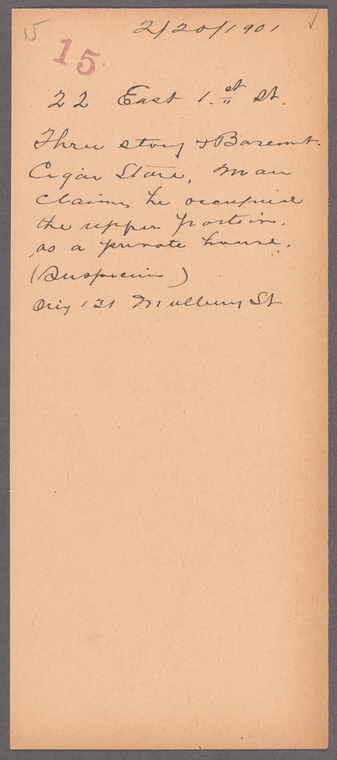 15
2/20/1901
15
22 East 1.st St.
Three story & Basemt.
Cigar Store, Man
claims he occupies
the upper portion.
as a private house.
(Suspicious)
131 Mulberry St